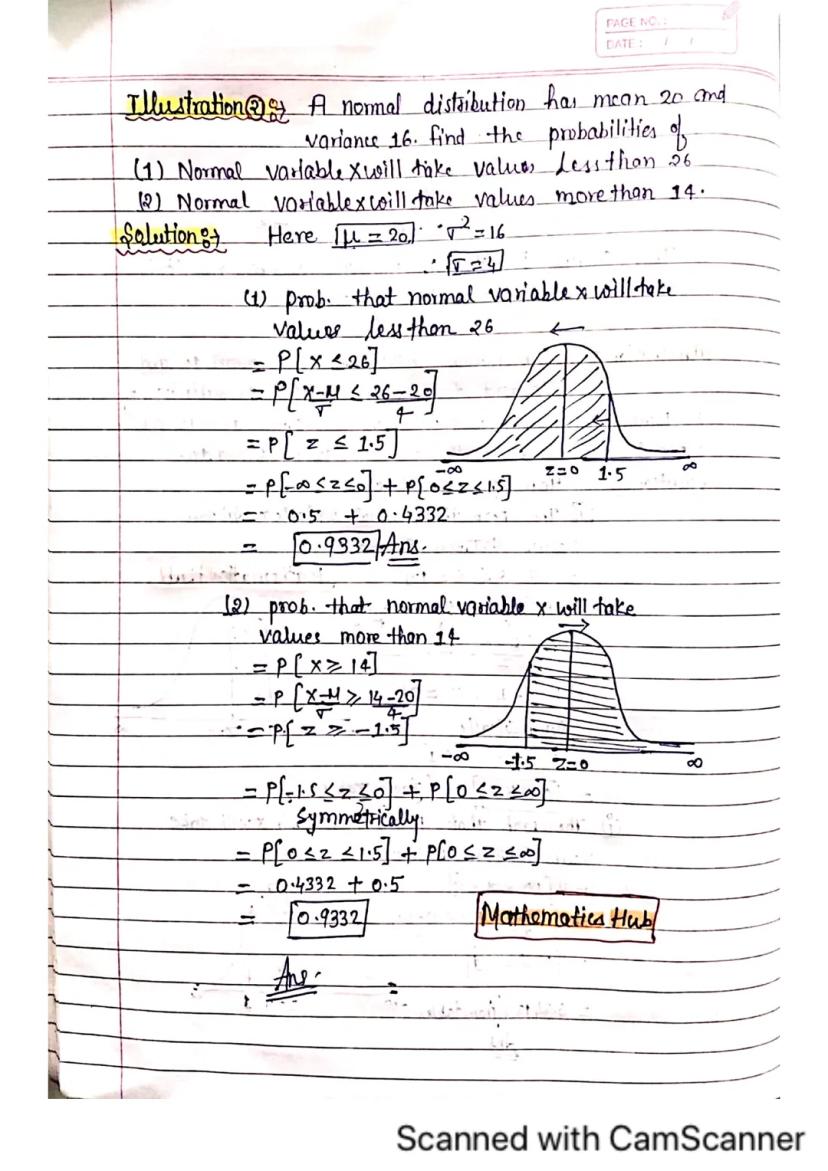 PAGE NO.:
DATE: / /
Illustration ② :→ A normal distribution has mean 20 and
variance 16. find the probabilities of
(1) Normal variable x will take values Less than 26
(2) Normal variable x will take values more than 14.
Solution :→ Here μ = 20 σ² = 16
∴ σ = 4
(1) prob. that normal variable x will take
values less than 26
= P[x ≤ 26]
= P[x-μ/σ ≤ 26-20/4]
= P[z ≤ 1.5]
-∞ z=0 1.5 ∞
= P[-∞ ≤ z ≤ 0] + P[0 ≤ z ≤ 1.5]
= 0.5 + 0.4332
= 0.9332 Ans.
(2) prob. that normal variable x will take
values more than 14
= P[x ≥ 14]
= P[x-μ/σ ≥ 14-20/4]
= P[z ≥ -1.5]
-∞ -1.5 z=0 ∞
= P[-1.5 ≤ z ≤ 0] + P[0 ≤ z ≤ ∞]
Symmetrically:
= P[0 ≤ z ≤ 1.5] + P[0 ≤ z ≤ ∞]
= 0.4332 + 0.5
= 0.9332
Mathematics Hub
Ans. =
Scanned with CamScanner